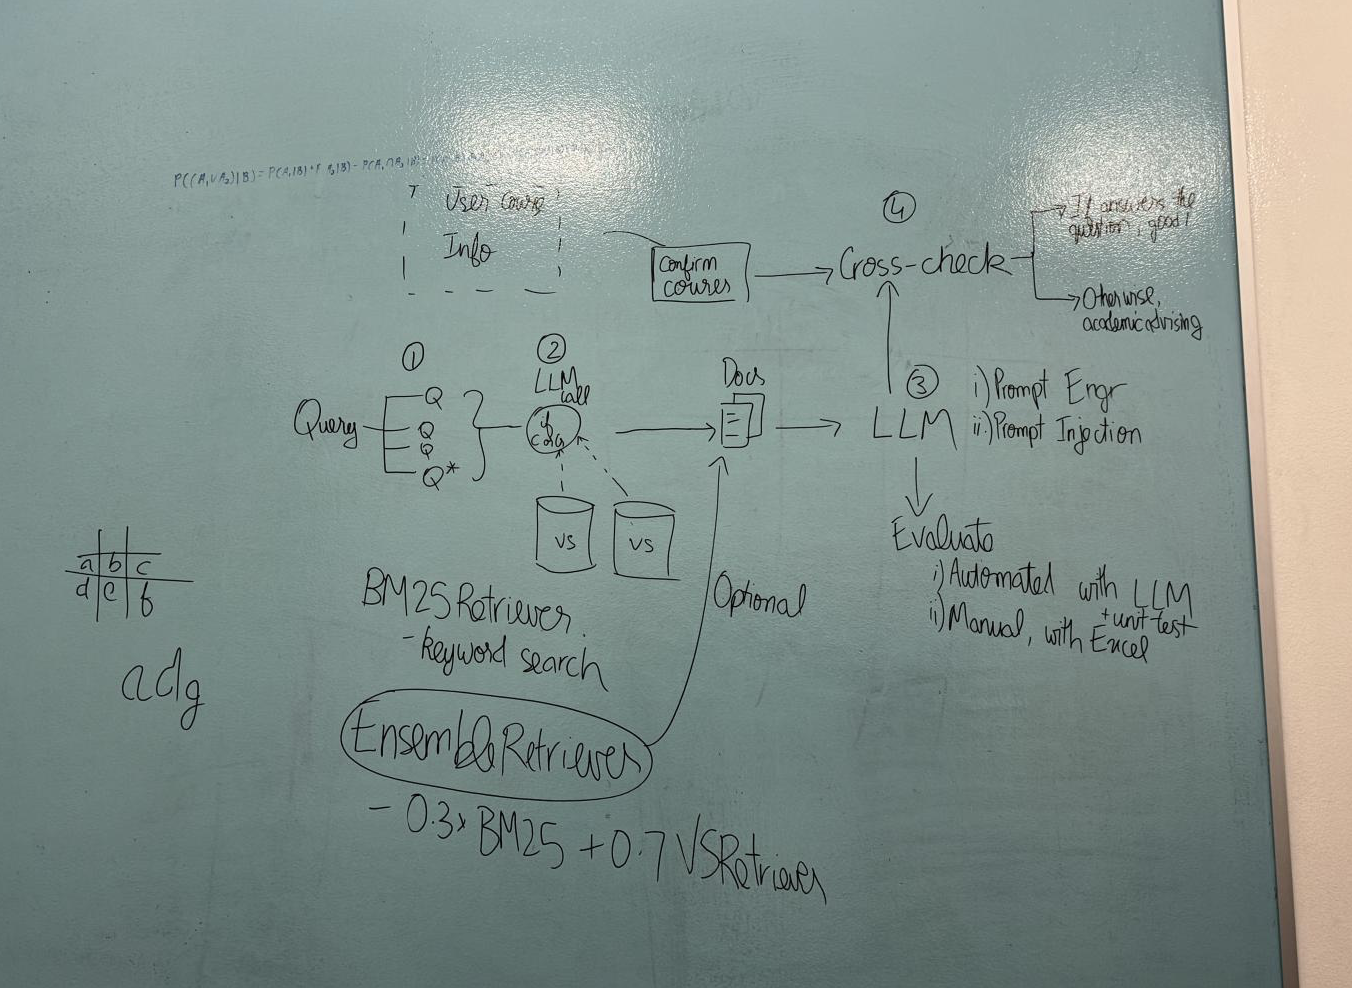 P((A₁∪A₂)|B) = P(A₁|B) + P(A₂|B) - P(A₁∩A₂|B)
User Course
Info
Confirm
courses
④
Cross-check
If answers the
question, good!
Otherwise,
academic advising
①
Query
Q
Q
Q
Q*
②
LLM
call
if
Docs
③
LLM
i) Prompt Engr
ii) Prompt Injection
VS
VS
Evaluate
i) Automated with LLM
+ unit test
ii) Manual, with Excel
Optional
BM25 Retriever
- keyword search
Ensemble Retriever
- 0.3x BM25 + 0.7 VSRetriever
a b c
d e f
adg